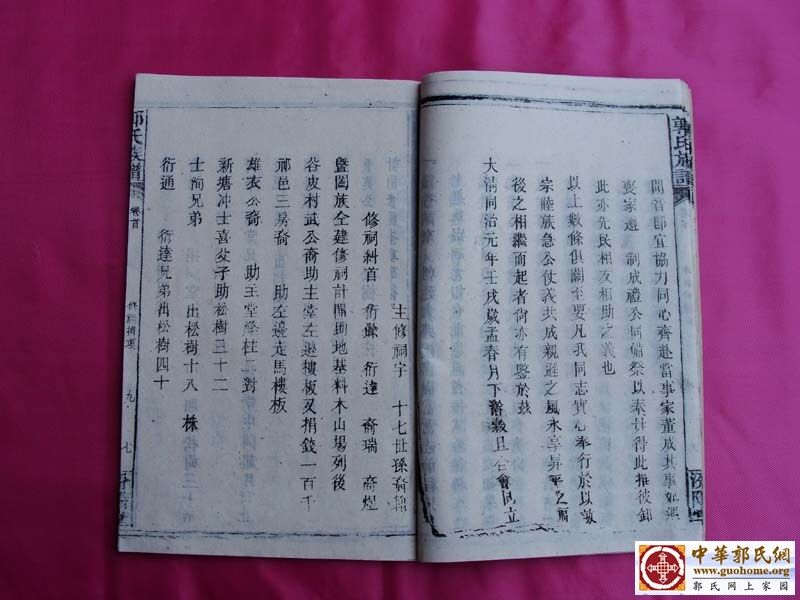 郭氏族譜
聞音即宜協力同心齊赴當事家董成其事如遇
喪家遵 制成禮公同備祭以奉毋得此推彼卸
此亦先民相友相助之義也
以上數條俱關至要凡我同志實心奉行於以敦
宗睦族急公仗義共成親遜之風永享昇平之福
後之相繼而起者尚亦有鑒於茲
大清同治元年壬戌歲孟春月下澣穀旦合會同立
主修祠字 十七世孫裔
修祠糾首 衍彙 衍達 裔瑞 裔煜
暨闔族仝建修祠計開助地基料木山場列後
谷皮村武公裔助主堂左邊樓板又捐錢一百千
祁邑三房裔 助左邊走馬樓板
雄衣公裔 助主堂祭桂二對
新塘冲士喜父子助松樹三十二
士洵兄弟 出松樹十八 株
衍通 衍達兄弟出松樹四十
郭氏族譜
卷首
修祠捐項
九
七
中華郭氏網
www.guohome.org
郭氏网上家园